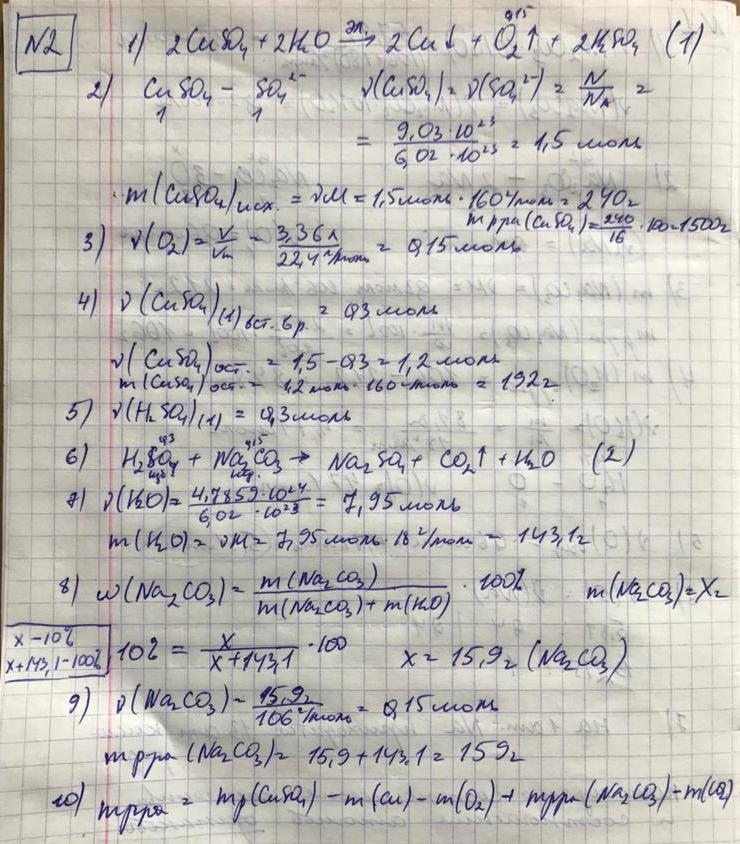 N2
1) 2CuSO₄ + 2H₂O эл.→ 2Cu↓ + O₂↑ + 2H₂SO₄ (1)
0,15
2) CuSO₄ – SO₄²⁻ ν(CuSO₄) = ν(SO₄²⁻) = N/Nₐ =
1 1
= 9,03·10²³/6,02·10²³ = 1,5 моль
m(CuSO₄)исх. = νM = 1,5 моль·160 г/моль = 240г
m р-ра (CuSO₄) = 240/16 ·100 = 1500г
3) ν(O₂) = V/Vm = 3,36л/22,4 л/моль = 0,15 моль
4) ν(CuSO₄)(1) вст. в р. = 0,3 моль
ν(CuSO₄)ост. = 1,5 – 0,3 = 1,2 моль
m(CuSO₄)ост. = 1,2 моль·160 г/моль = 192г
5) ν(H₂SO₄)(1) = 0,3 моль
0,3 0,15
6) H₂SO₄ + Na₂CO₃ → Na₂SO₄ + CO₂↑ + H₂O (2)
изб. нед.
7) ν(H₂O) = 4,7859·10²⁴/6,02·10²³ = 7,95 моль
m(H₂O) = νM = 7,95 моль·18 г/моль = 143,1г
8) ω(Na₂CO₃) = m(Na₂CO₃)/m(Na₂CO₃) + m(H₂O) ·100% m(Na₂CO₃) = Xг
x – 10%
x + 143,1 – 100%
10% = x/x + 143,1 ·100 x = 15,9г (Na₂CO₃)
9) ν(Na₂CO₃) = 15,9г/106 г/моль = 0,15 моль
m р-ра (Na₂CO₃) = 15,9 + 143,1 = 159г
10) m р-ра = m р(CuSO₄) – m(Cu) – m(O₂) + m р-ра (Na₂CO₃) – m(CO₂)